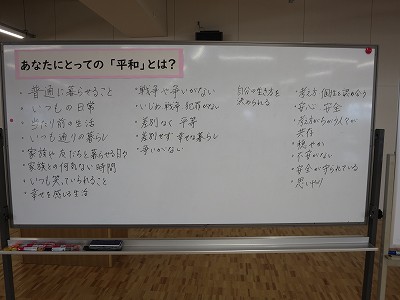 あなたにとっての「平和」とは？
・普通に暮らせること
・いつもの日常
・当たり前の生活
・いつも通りの暮らし
・家族や友だちと暮らせる日々
・家族との何気ない時間
・いつも笑っていられること
・幸せを感じる生活
・戦争や争いがない
・いじめ、戦争、犯罪がない
・差別なく、平等
・差別せず、幸せな暮らし
・争いがない
自分の生き方を
決められる
・考え方、個性を認め合う
・安心 安全
・考え方がちがう人との
共存
・穏やか
・不安がない
・安全が守られている
・思いやり